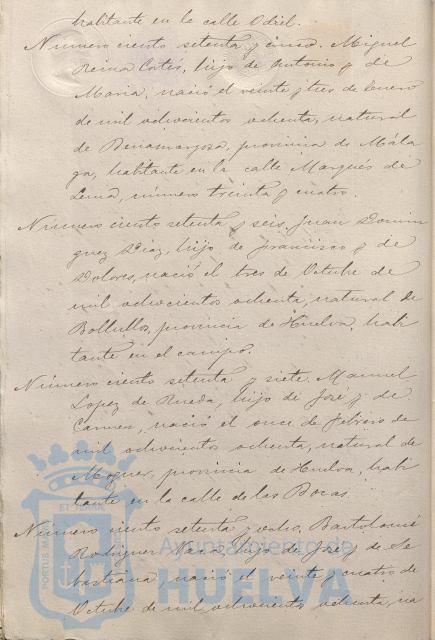 habitante en la calle Odiel.
Número ciento setenta y cinco. Miguel
Reina Cortés, hijo de Antonio y de
Maria, nació el veinte y tres de Enero
de mil ochocientos ochenta, natural
de Benamargosa, provincia de Mála
ga, habitante en la calle Marqués de
Lema, número treinta y cuatro.
Número ciento setenta y seis, Juan Domin
guez Diaz, hijo de Francisco y de
Dolores, nació el tres de Octubre de
mil ochocientos ochenta, natural de
Bollullos, provincia de Huelva, habi
tante en el campo.
Número ciento setenta y siete. Manuel
Lopez de Rueda, hijo de José y de
Carmen, nació el once de Febrero de
mil ochocientos ochenta, natural de
Moguer, provincia de Huelva, habi
tante en la calle de las Bocas.
Número ciento setenta y ocho, Bartolomé
Rodriguez Vaca, hijo de José y de Se
bastiana nació el veinte y cuatro de
Octubre de mil ochocientos ochenta, na
Ayuntamiento de
HUELVA
PORTUS MA